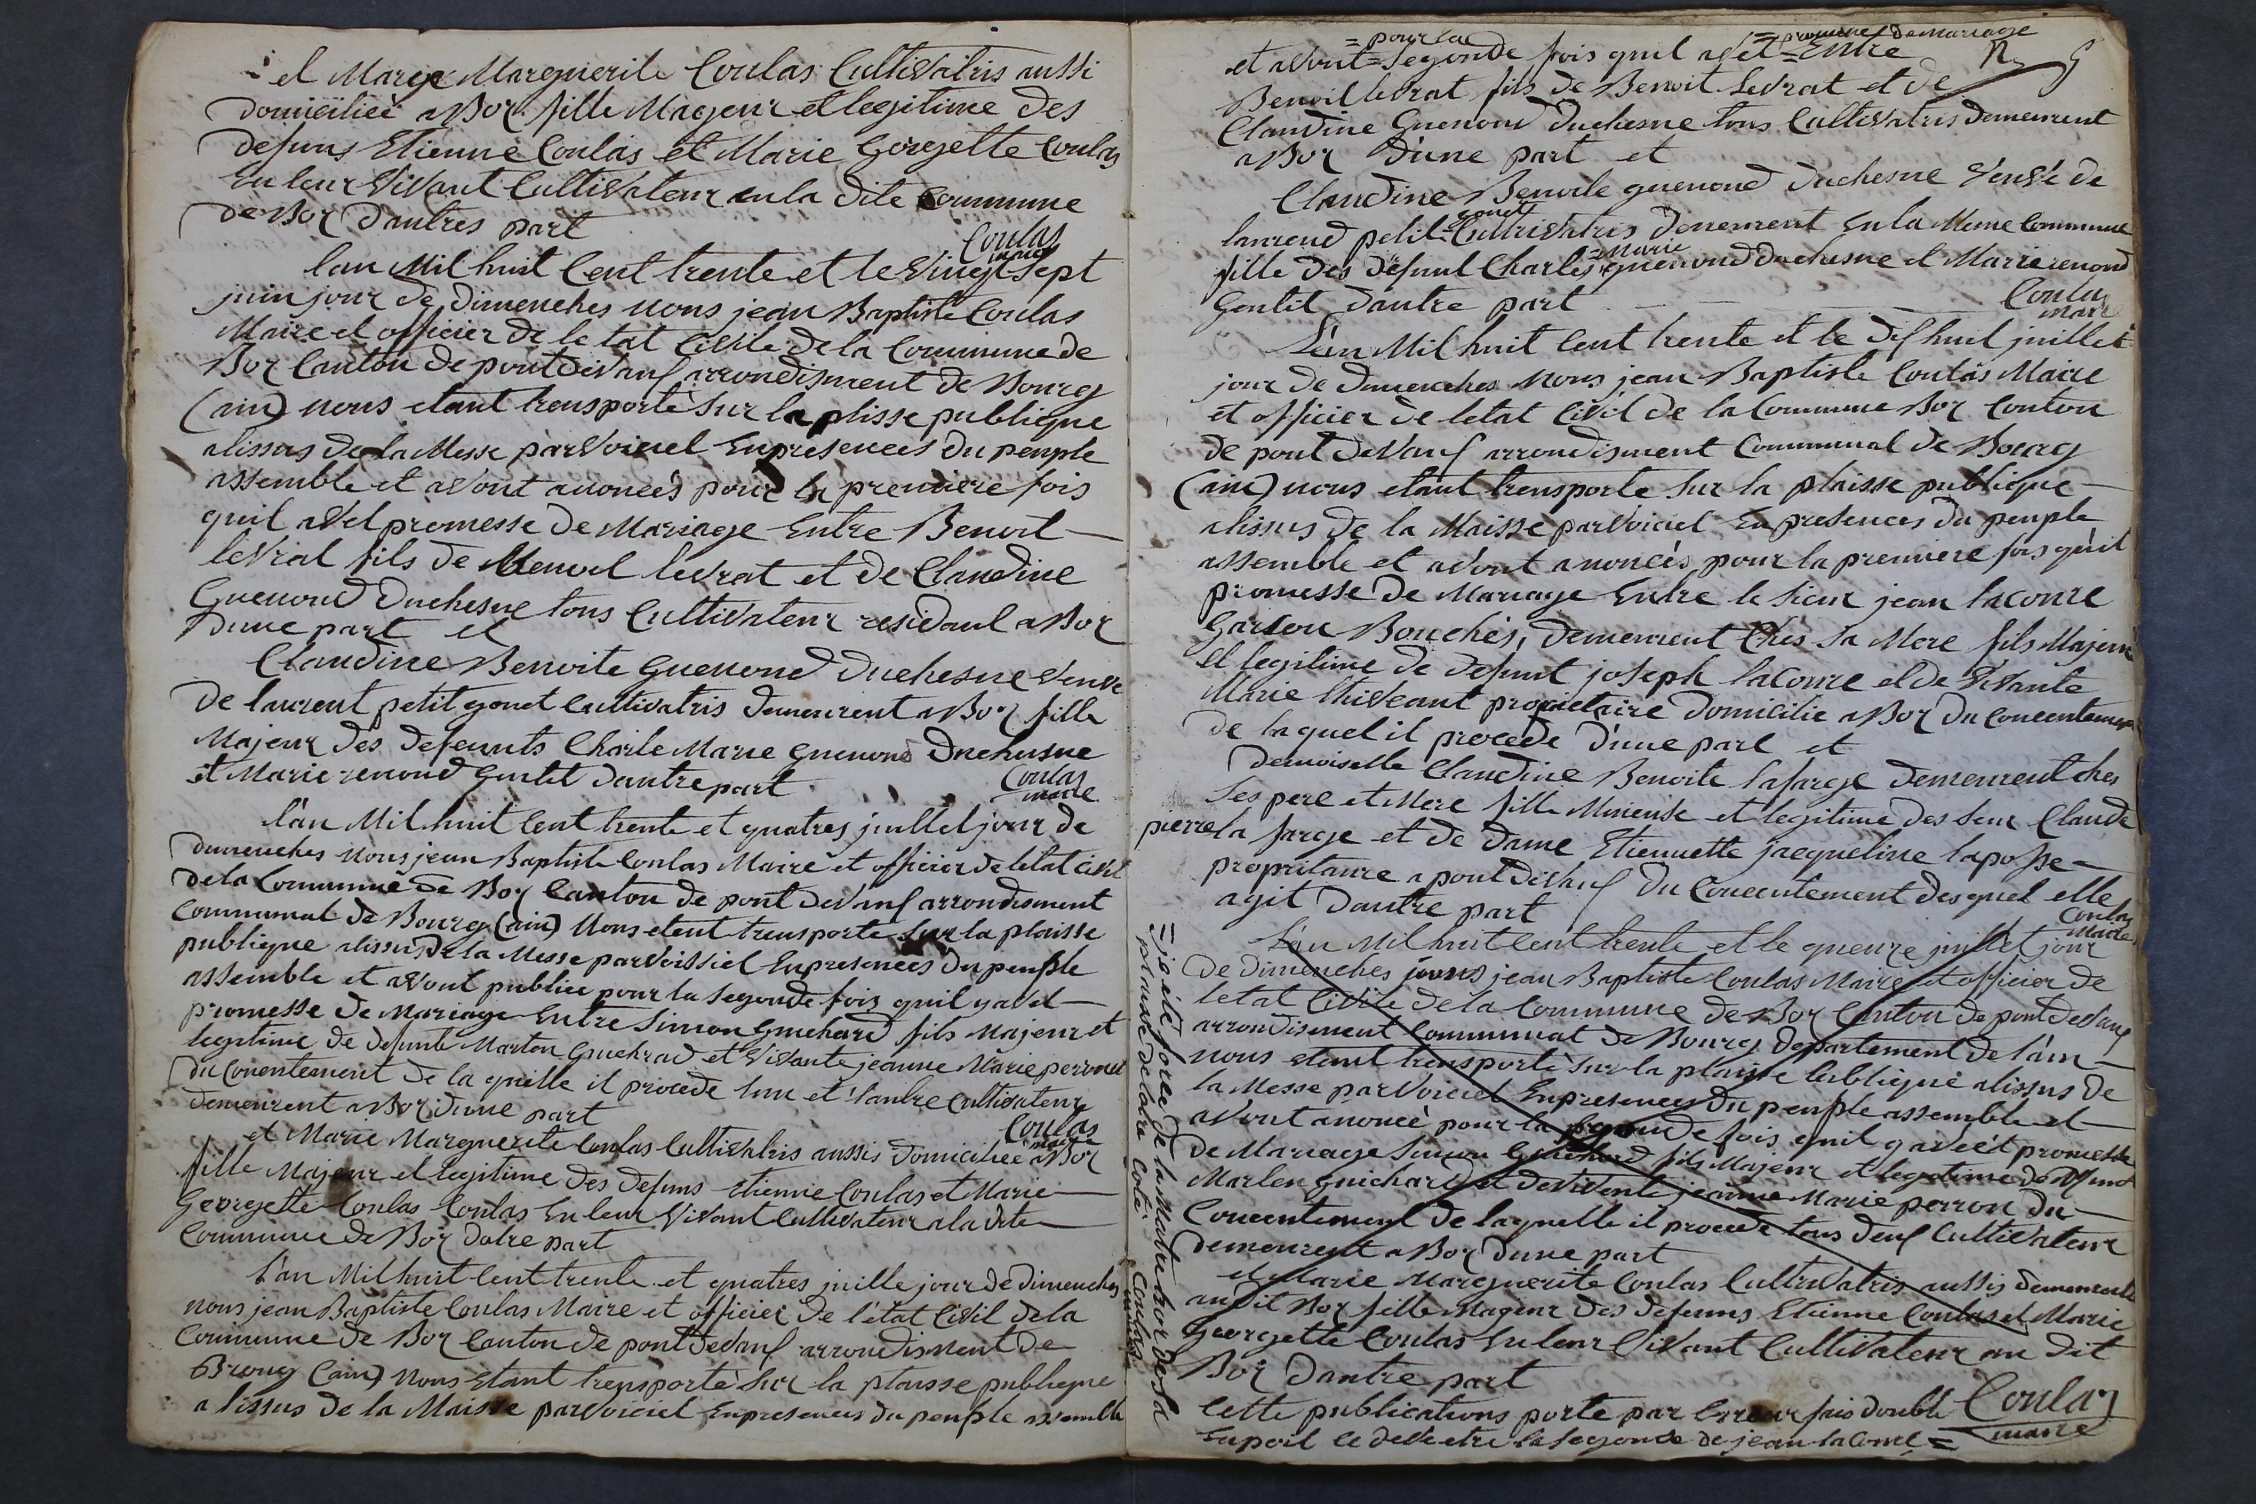 et Marge Marguerite Coulas Cultivatris aussi
domiciliée a Boz fille Mageur et legitime des
defuns Etienne Coulas et Marie Gorgette Coulas
En leur vivant Cultivateur en la dite Commune
de Boz dautres part
Coulas
maire
lan Mil huit Cent trente et le vingt sept
juin jour de dimenches nous jean Baptiste Coulas
Maire et officier de le tat Civile de la Commune de
Boz Canton de pontdevaux arrondisment de Bourg
(ain) nous etant trensporté sur la plisse publique
alissus de la Messe parvoiciel En presences du peuple
assemble et avont anoncés pour la premiere fois
quil avet promesse de Mariage Entre Benoit
levrat fils de Benoit levrat et de Claudine
Guenoud Duchesne tous Cultivateur residant a Boz
dune part et
Claudine Benoite Guenoud Duchesne veuve
de laurent petit gonet Cultivatris demeurent a Boz fille
Majeur des defeunts Charle Marie guenoud Duchesne
et Marie renoud Gentit dautre part
Coulas
maire
lan Mil huit Cent trente et quatres juillet jour de
dimenches nous jean Baptiste Coulas Maire et officier de letat Civil
de la Commune de Boz Canton de pont devaux arrondisment
Communal de Bourg (ain) Nous etent trensporte sur la plaisse
publique alissus de la Messe parvoissiel En presences du peuple
assemble et avont publiee pour la segonde fois quil yavet
promesse de Mariage Entre Simon Guichard fils Majeur et
legitime de defunts Marton Guichrad et vivante jeanne Marie perroud
du Conentement de la quille il procede lun et l'autre Cultivateur
demeurent a Boz dune part
Coulas
maire
et Marie Marguerite Coulas Cultivatris aussis domiciliee a Boz
fille Majeur et legitime des defuns Etienne Coulas et Marie
Georgette Coulas Coulas En leur vivant Cultivateur a la dite
Commune de Boz datre part
L'an Mil huit Cent trente et quatres juille jour de dimenches
nous jean Baptiste Coulas Maire et officier de l'état Civil de la
Commune de Boz Canton de pontdevaux arrondisment de
Broug (ain) Nous Etant trensporté sur la plausse publique
a lissus de la Maisse parvoiciel En presences du peuple assemble
= pour la
= promesse de mariage
et avont = segonde fois quil avet = Entre
Benoit levrat fils de Benoit Levrat et de
Claudine Guenoud Duchesne tous Cultivatris demeurent
a Boz d'une part et
Claudine Benoite guenoud duchesne veuve de
gonet
laurend petit = Cultrivatris demeurent En la Meme Commune
= Marie
fille des defunt Charles = guenoud duchesne et Marie renoud
Gentit dautre part
Coulas
maire
L'an Mil huit Cent trente et le dix huit juillet
jour de dimenches Nous jean Baptiste Coulas Maire
et officier de letat Civil de la Commune Boz Conton
de pont devaux arrondisment Communal de Bourg
(ain) nous etant trensporte sur la plaisse publique
alissus de la Maisse parvoiciel En presences du peuple
assemble et avont anoncés pour la premiere fois quil
promesse de Mariage Entre le sieur jean lacome
Garson Bouchés, demeurent Chés sa Mere fils Majeur
et legitime de defunt joseph lacome et de vivante
Marie thiveant propietaire domicilie a Boz du Concentement
de laquel il procede d'une part et
Demoiselle Claudine Benoite lafarge demeurent ches
ses pere et Mere fille Mineuse et legitime des seur Claude
pierre la farge et de dame Etiennette jacqueline laposse
propritaire a pontdevaux du Concentement desquel elle
agit dautre part
Coulas
Maire
L'an Mil huit Cent trente et le quenze juillet jour
de dimenches nous jean Baptiste Coulas Maire et officier de
letat Civile de la Commune de Boz Canton de pontdevaux
arrondisement Communal de Bourg departement de l'ain
nous etant trensporté sur la plaisse lublique alissus de
la Messe parvoiciel En presences du peuple assemble et
avont anoncé pour la segonde fois quil y aveet promesse
de Mariage Simon Guichard fils Majeur et legetime de defunt
Marten guichard et de vivente jeanne Marie perron du
Concentement de laquelle il procede tous deux Cultivateur
demeurent a Boz dune part
et Marie Marguerite Coulas Cultrivatris aussis demeurent
au dit Boz fille Mageur des defuns Etienne Coulas et Marie
Georgette Coulas En leur vivant Cultivateur au dit
Boz dautre part
Cette publications porte par Erreur fais double
En poil ce devé etre la segonde de jean lacome =
Coulas
maire
= jé été forcé de la Mettre hor de sa
plausse de latre Coté. Coulas
maire